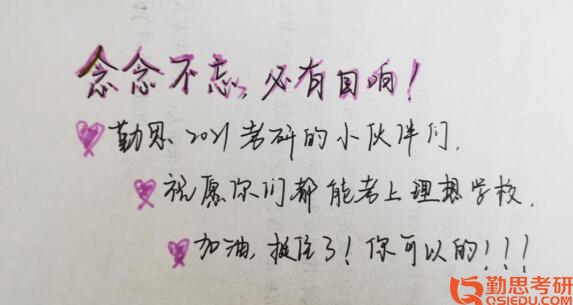 念念不忘,必有回响!
勤思2021考研的小伙伴们,
祝愿你们都能考上理想学校.
加油,挺住了!你可以的!!!
勤思考研
QSIEDU.COM